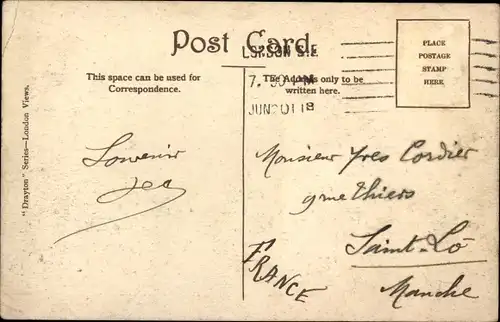 Post Card
LONDON S.E.
7. 30 PM
JUN 20 18
PLACE
POSTAGE
STAMP
HERE
This space can be used for
Correspondence.
The Address only to be
written here.
"Drayton" Series—London Views.
Souvenir
Monsieur Yves Cordier
Thiers
Saint-Lô
Manche
FRANCE